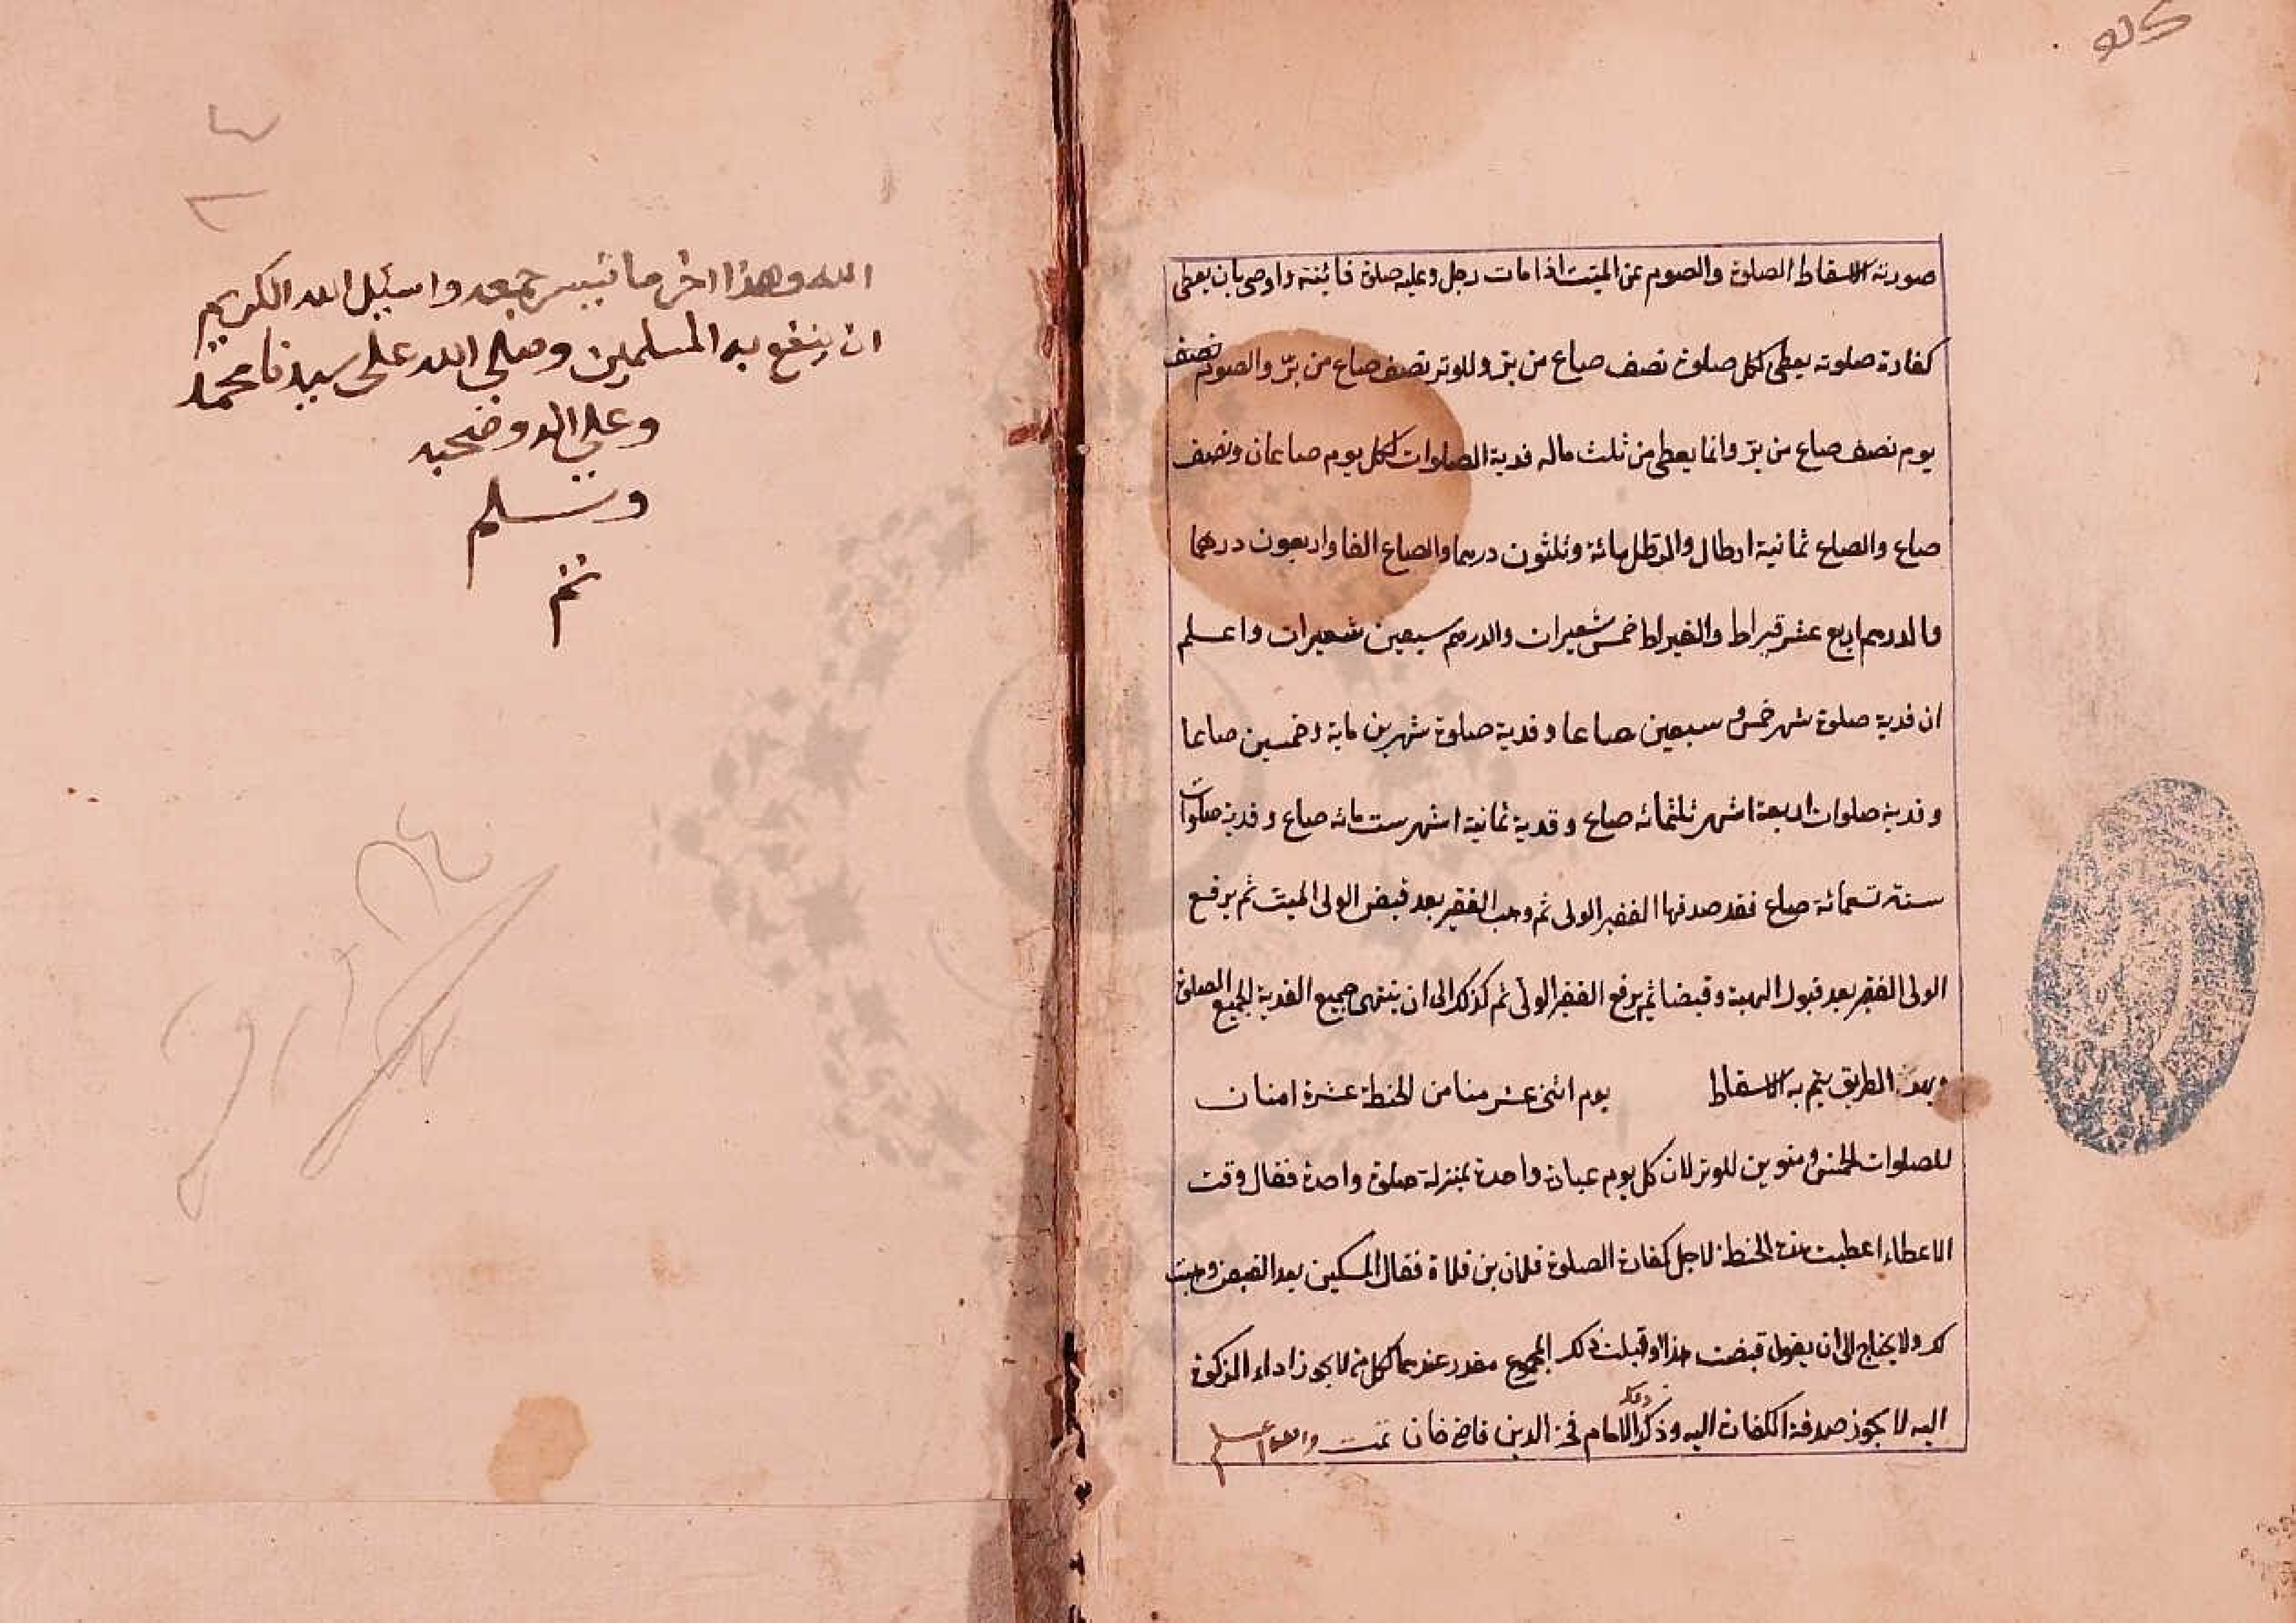 صورته الاسقاط الصلوة والصوم عن الميت اذا مات رجل وعليه صلوة فائتة واوصى بان يعطى
كفارة صلوته يعطى لكل صلوة نصف صاع من بر وللوتر نصف صاع من برّ والصوم نصف
يوم نصف صاع من برّ وانما يعطى من ثلث ماله فدية الصلوات لكل يوم صاعان ونصف
صاع والصاع ثمانية ارطال والرطل مائة وثلثون درهما والصاع الفا واربعون درهما
فالدرهم اربع عشر قيراط والقيراط خمس شعيرات والدرهم سبعين شعيرات واعلم
ان فدية صلوة شهر خمس و سبعين صاعا وفدية صلوة شهرين ماية وخمسين صاعا
وفدية صلوات اربعة اشهر ثلثمائه صاع وفدية ثمانية اشهر ست مائه صاع وفدية صلوات
سنة تسعمائة صاع فقد صدقها الفقير الولى ثم وهب الفقير بعد قبض الولى الميت ثم يرفع
الولى الفقير بعد قبول الهبة وقبضا ثم يرفع الفقير الولى ثم كذلك الى ان ينتهى جميع الفدية لجميع الصلوة
وبهذا الطريق يتم به الاسقاط يوم اثنى عشر منا من الحنطة عشرة امنان
للصلوات الخمس ومنوين للوتر لان كل يوم عبادة واحدة بمنزلة صلوة واحدة فقال وقت
الاعطاء اعطيت هذه الحنطة لاجل كفارة الصلوة فلان بن فلاة فقال المسكين بعد القبض وهبت
لك ولا يحتاج الى ان يقول قبضت هذا وقبلت ذلك المجموع مقدر عندهما كل من لا يجوز اداء الزكوة
اليه لا يجوز صدقة الكفارة اليه وذكر الامام فخر الدين قاضى خان تمت والله اعلم
الله وهذا اخر ما تيسر جمعه واسئل الله الكريم
ان ينفع به المسلمين وصلى الله على سيدنا محمد
وعلى اله وصحبه
وسلم
تم